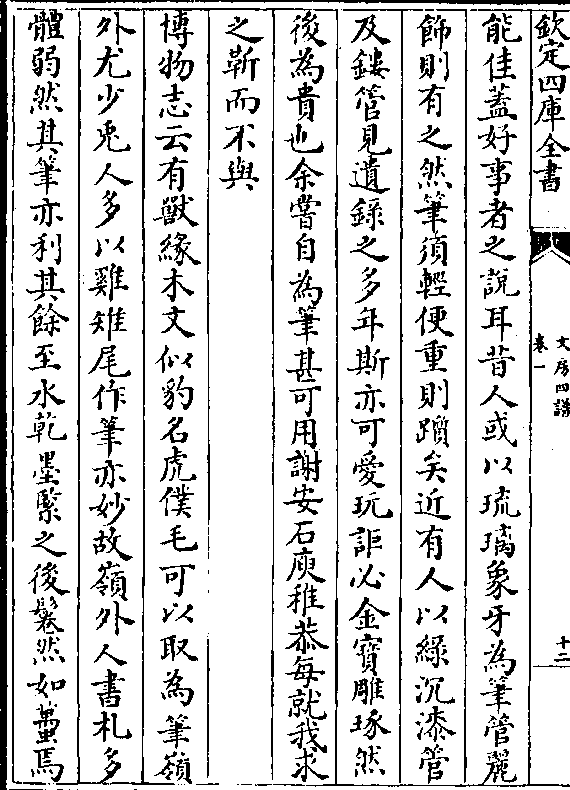 欽定四庫全書
文房四譜
卷一
十二
能佳蓋好事者之説耳昔人或以琉璃象牙為筆管麗
飾則有之然筆須輕便重則躓矣近有人以綠沉漆管
及鏤管見遺錄之多年斯亦可愛玩詎必金寶雕琢然
後為貴也余嘗自為筆甚可用謝安石庾稚恭每就我求
之靳而不與
博物志云有獸緣木文似豹名虎僕毛可以取為筆嶺
外尤少兎人多以雞雉尾作筆亦妙故嶺外人書札多
體弱然其筆亦利其餘至水乾墨緊之後鬈然如蠆焉